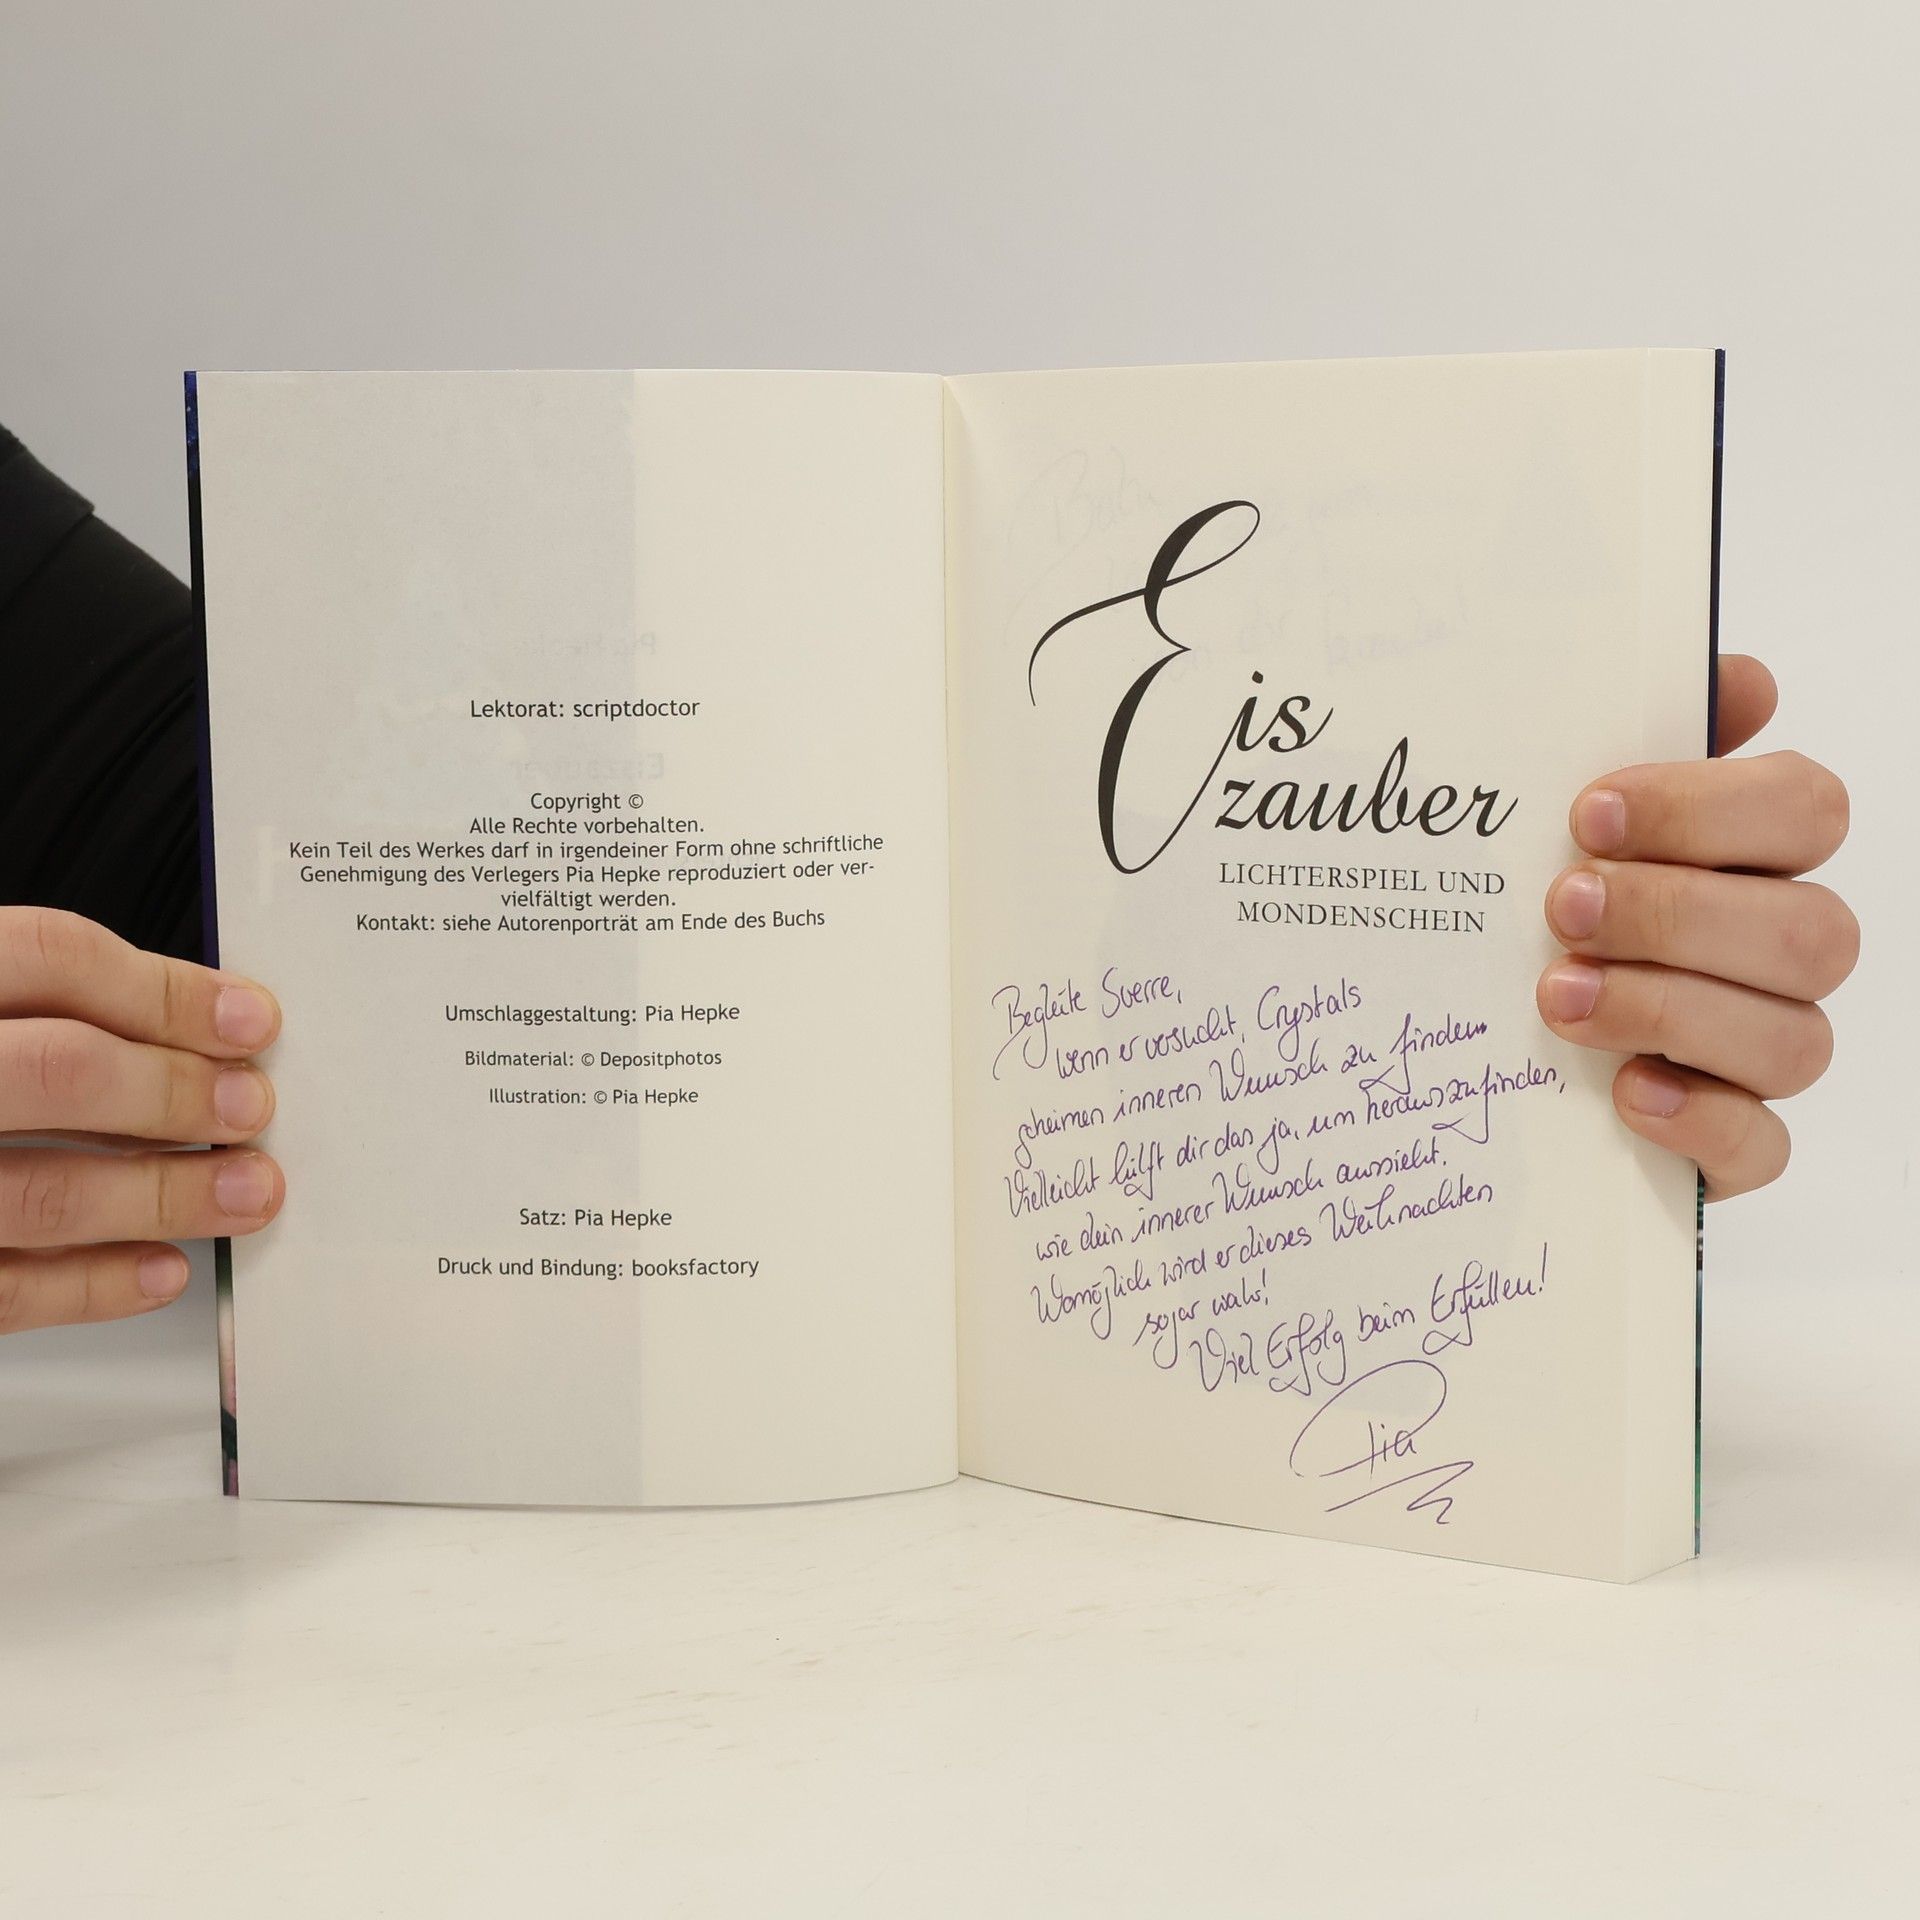 Lektorat: scriptdoctor
Copyright ©
Alle Rechte vorbehalten.
Kein Teil des Werkes darf in irgendeiner Form ohne schriftliche
Genehmigung des Verlegers Pia Hepke reproduziert oder ver-
vielfältigt werden.
Kontakt: siehe Autorenporträt am Ende des Buchs
Umschlaggestaltung: Pia Hepke
Bildmaterial: © Depositphotos
Illustration: © Pia Hepke
Satz: Pia Hepke
Druck und Bindung: booksfactory
Eis
zauber
LICHTERSPIEL UND
MONDENSCHEIN
Begleite Sverre,
wenn er versucht, Crystals
geheimen inneren Wunsch zu finden.
Vielleicht hilft dir das ja, um herauszufinden,
wie dein innerer Wunsch aussieht.
Womöglich wird er dieses Weihnachten
sogar wahr!
Viel Erfolg beim Erfüllen!
Pia